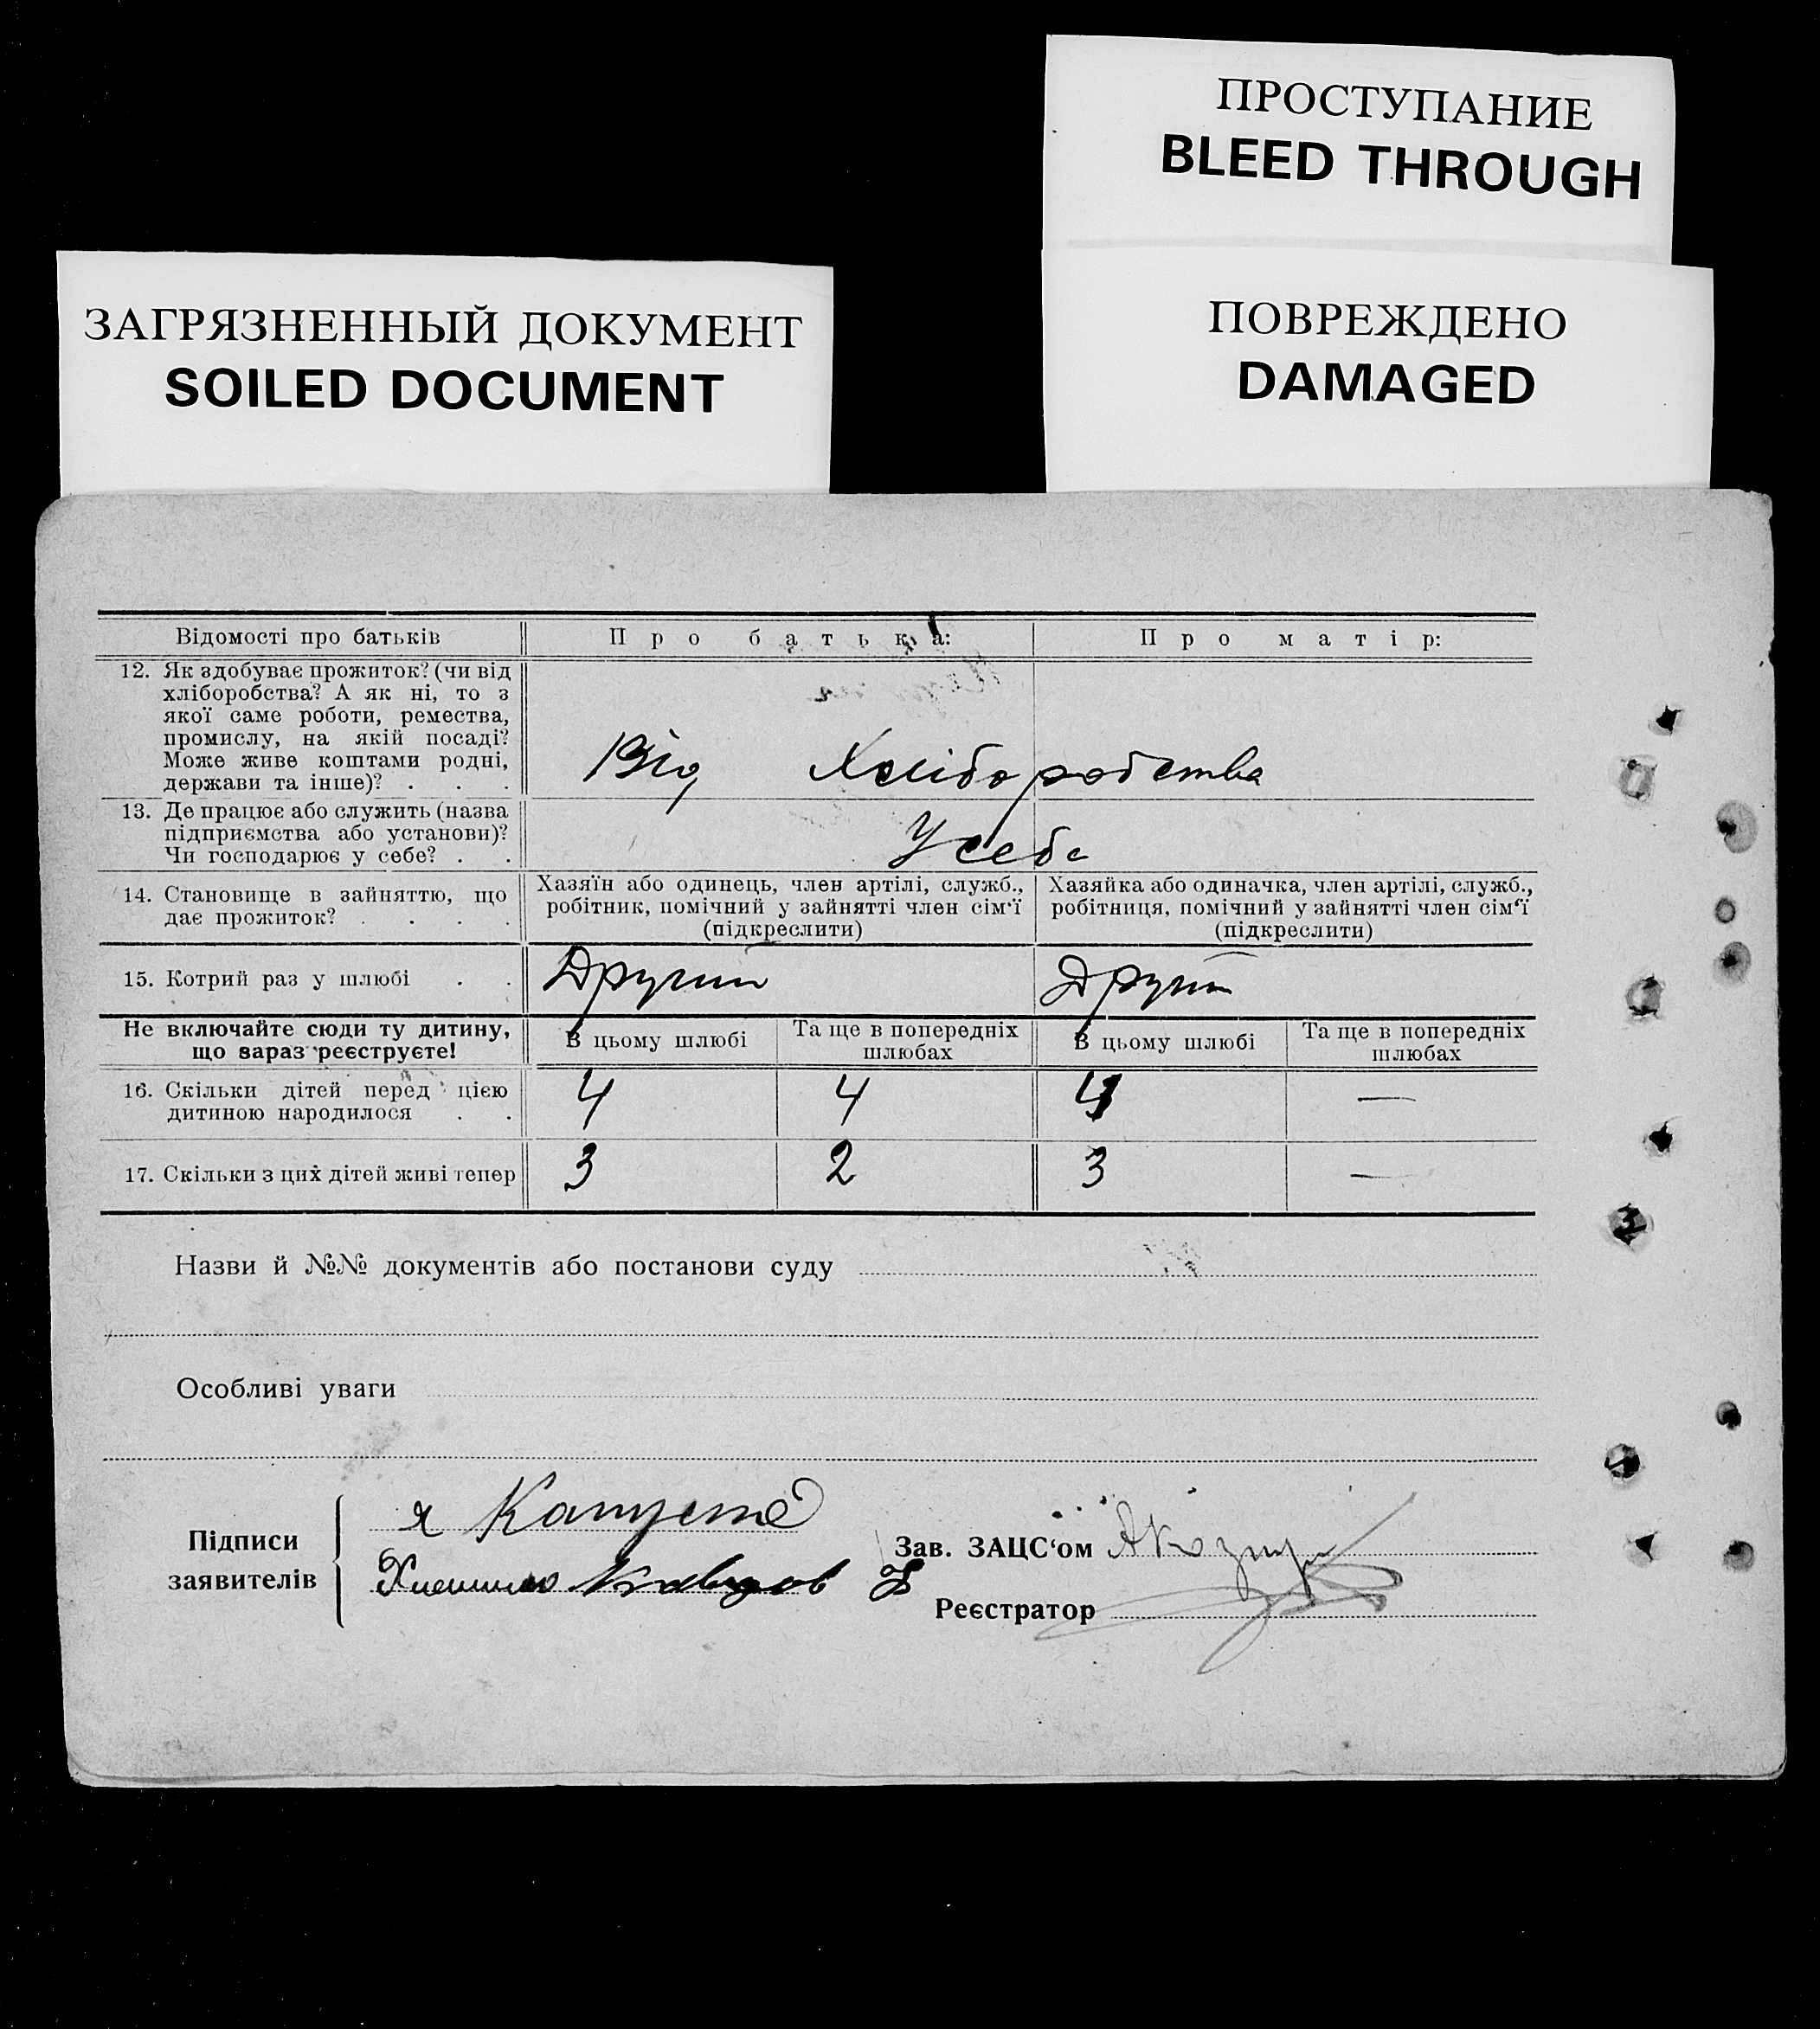 ПРОСТУПАНИЕ
BLEED THROUGH
ЗАГРЯЗНЕННЫЙ ДОКУМЕНТ
SOILED DOCUMENT
ПОВРЕЖДЕНО
DAMAGED
Відомості про батьків
Про батька:
Про матір:
12. Як здобуває прожиток? (чи від
хліборобства? А як ні, то з
якої саме роботи, ремества,
промислу, на якій посаді?
Може живе коштами родні,
держави та інше)? . . .
Від Хліборобства
13. Де працює або служить (назва
підприємства або установи)?
Чи господарює у себе? . .
У себе
14. Становище в зайняттю, що
дає прожиток? . . . .
Хазяїн або одинець, член артілі, служб.,
робітник, помічний у зайнятті член сім'ї
(підкреслити)
Хазяйка або одиначка, член артілі, служб.,
робітниця, помічний у зайнятті член сім'ї
(підкреслити)
15. Котрий раз у шлюбі . .
Другий
Другий
Не включайте сюди ту дитину,
що вараз реєструєте!
В цьому шлюбі
Та ще в попередніх
шлюбах
В цьому шлюбі
Та ще в попередніх
шлюбах
16. Скільки дітей перед цією
дитиною народилося . .
4 4 4 —
17. Скільки з цих дітей живі тепер
3 2 3 —
Назви й №№ документів або постанови суду
Особливі уваги
Підписи
заявителів
я Капуста
Зав. ЗАЦС'ом
Реєстратор